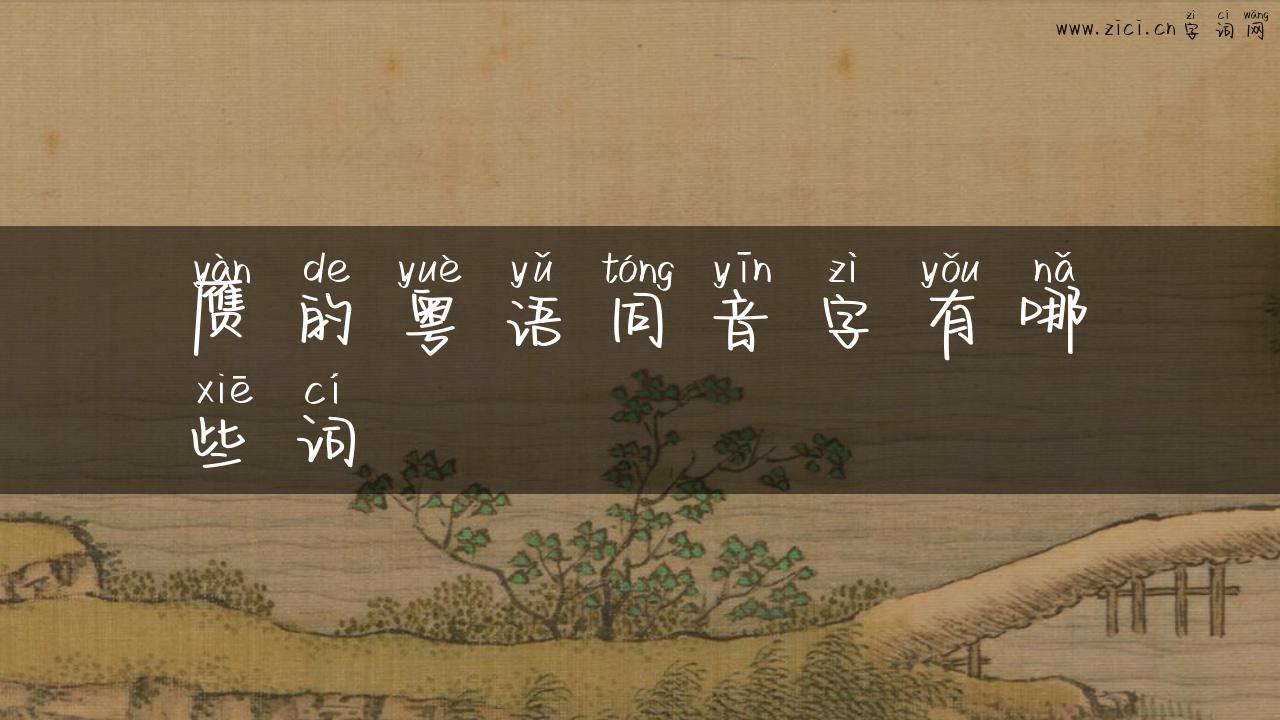 zì cí wǎng
www.zici.cn 字 词 网
yàn de yuè yǔ tóng yīn zì yǒu nǎ
赝 的 粤 语 同 音 字 有 哪
xiē cí
些 词